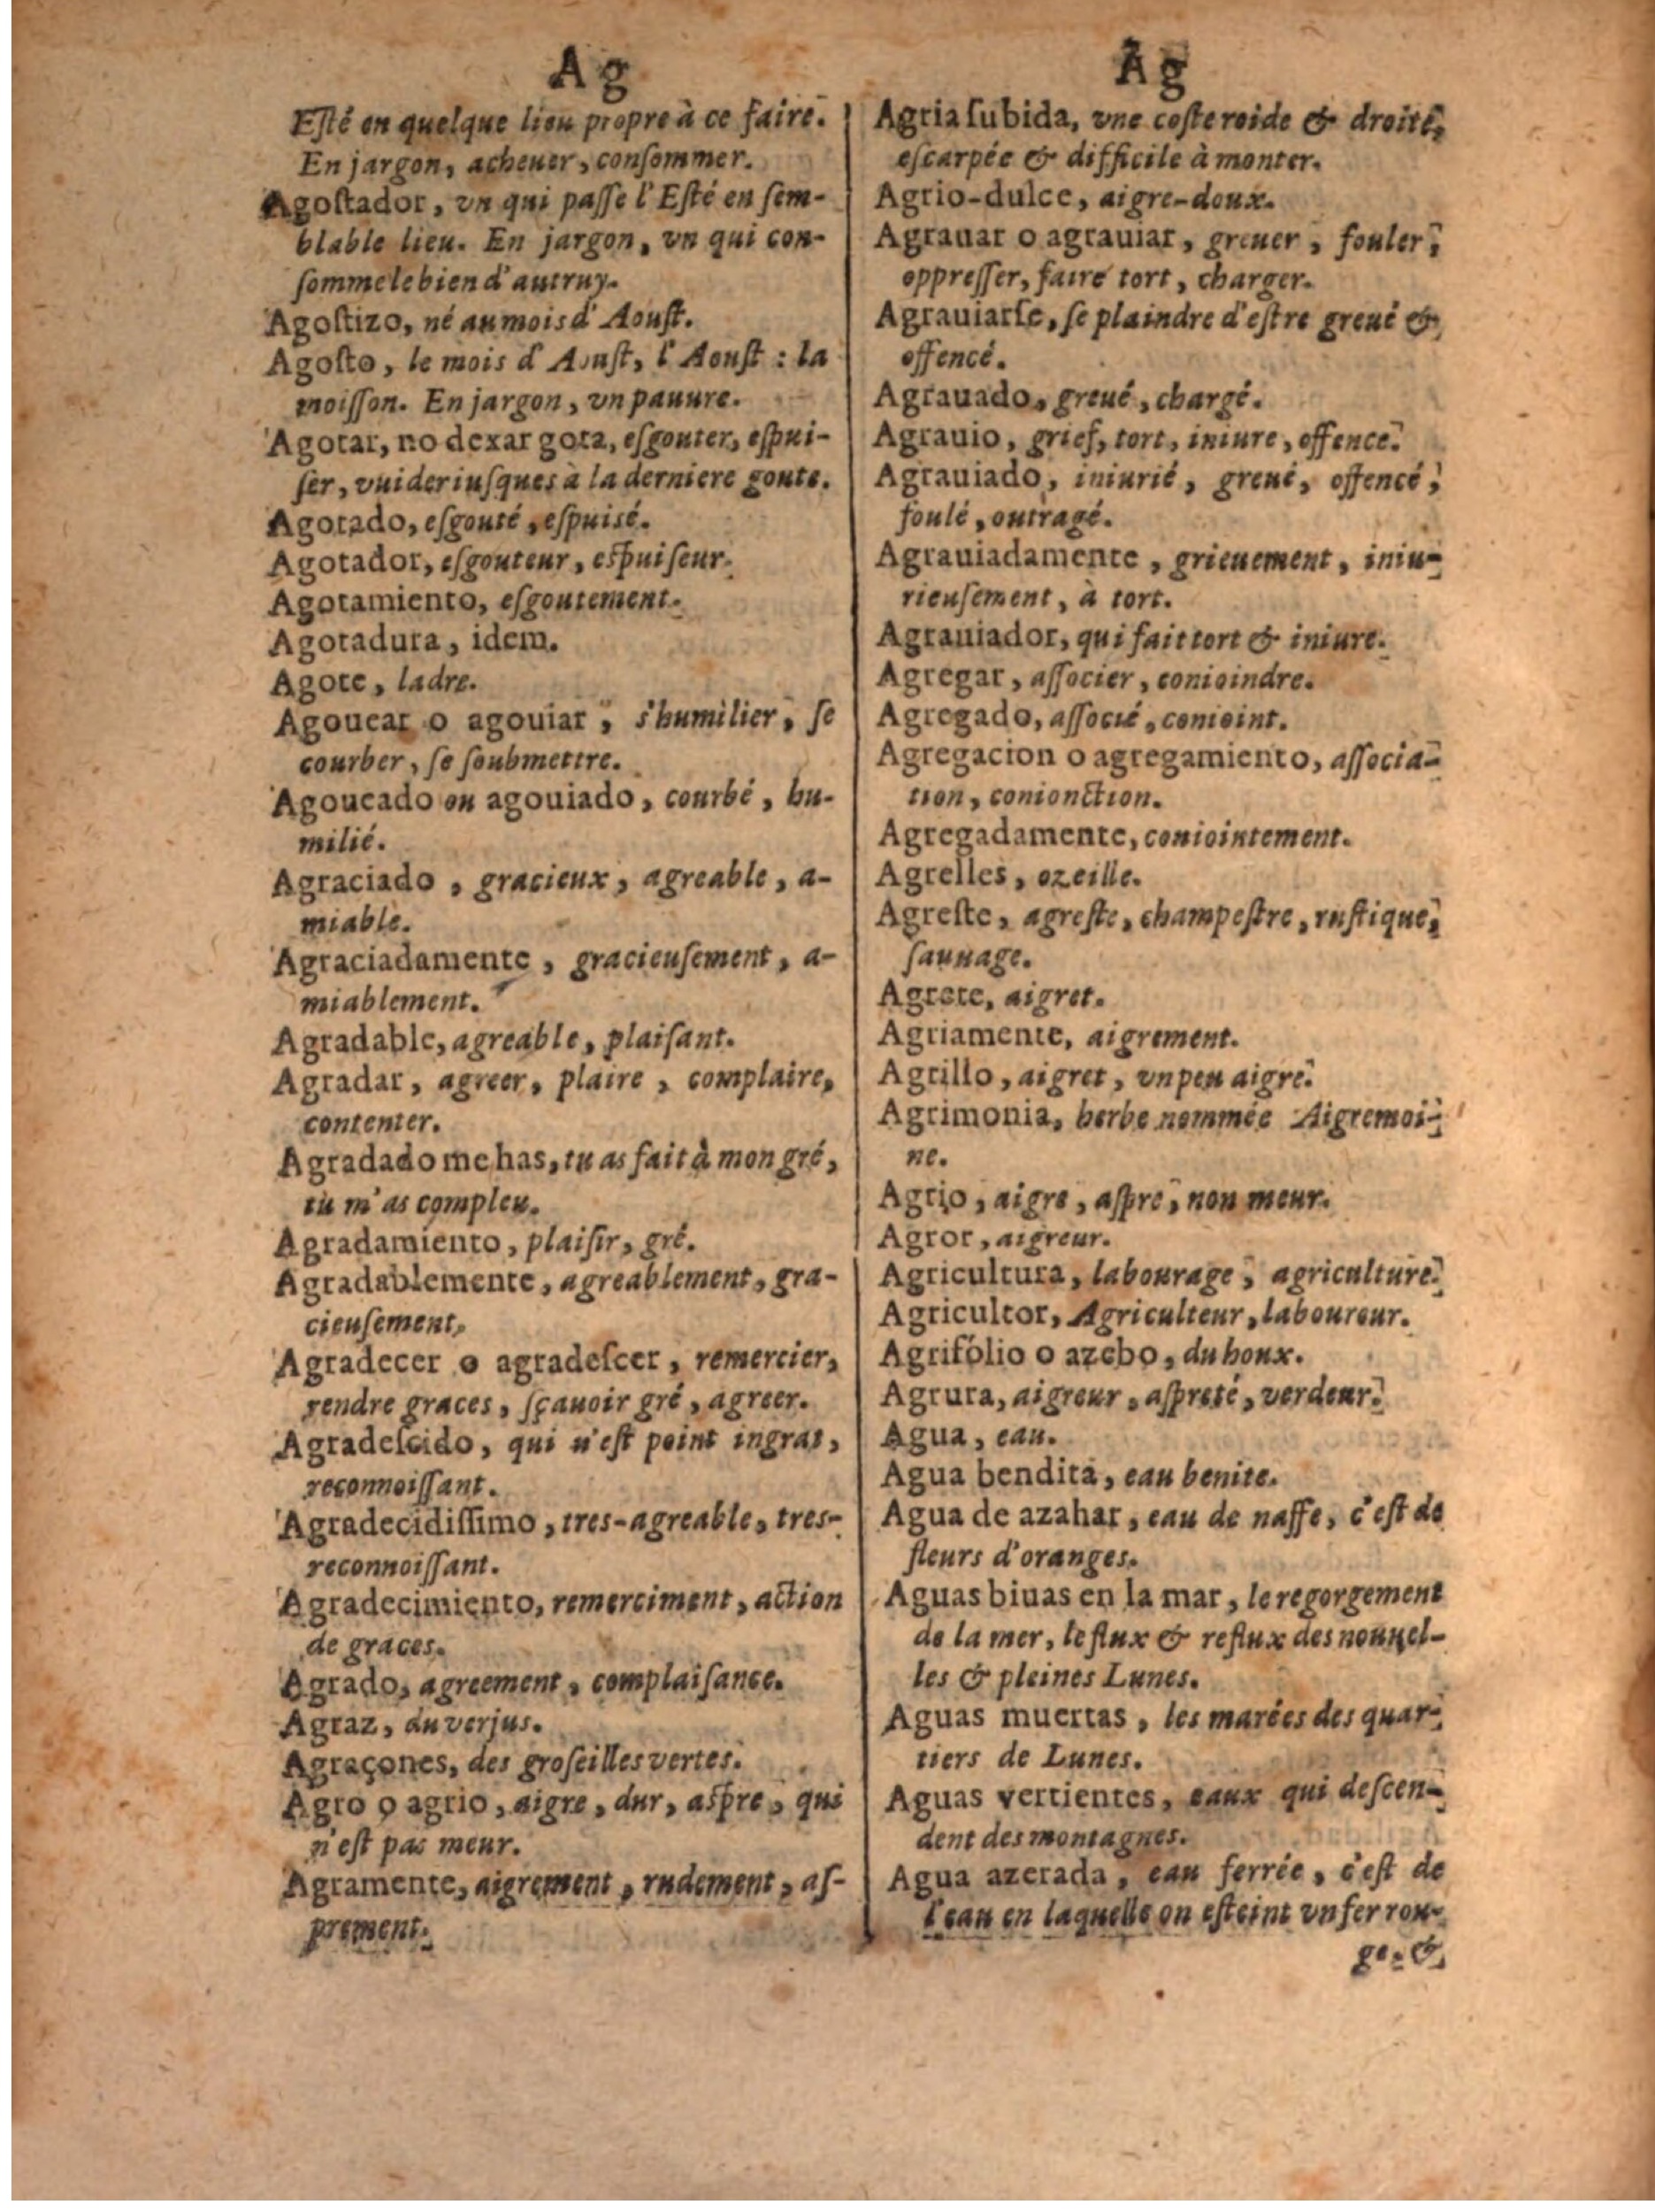 Ag
Esté en quelque lieu propre à ce faire.
En jargon, acheuer, consommer.
Agostador, vn qui passe l'Esté en sem-
blable lieu. En jargon, vn qui con-
somme le bien d'autruy.
Agostizo, né au mois d'Aoust.
Agosto, le mois d'Aoust, l'Aoust : la
moisson. En jargon, vn pauure.
Agotar, no dexar gota, esgouter, espui-
ser, vuider iusques à la derniere goute.
Agotado, esgouté, espuisé.
Agotador, esgouteur, espuiseur.
Agotamiento, esgoutement.
Agotadura, idem.
Agote, ladre.
Agouear o agouiar, s'humilier, se
courber, se soubmettre.
Agoueado ou agouiado, courbé, hu-
milié.
Agraciado, gracieux, agreable, a-
miable.
Agraciadamente, gracieusement, a-
miablement.
Agradable, agreable, plaisant.
Agradar, agreer, plaire, complaire,
contenter.
Agradado me has, tu as fait à mon gré,
tu m'as compleu.
Agradamiento, plaisir, gré.
Agradablemente, agreablement, gra-
cieusement,
Agradecer o agradescer, remercier,
rendre graces, sçauoir gré, agreer.
Agradescido, qui n'est point ingrat,
reconnoissant.
Agradecidissimo, tres-agreable, tres-
reconnoissant.
Agradecimiento, remerciment, action
de graces.
Agrado, agreement, complaisance.
Agraz, du verjus.
Agraçones, des groseilles vertes.
Agro o agrio, aigre, dur, aspre, qui
n'est pas meur.
Agramente, aigrement, rudement, as-
prement.
Ag
Agria subida, vne coste roide & droite,
escarpée & difficile à monter.
Agrio-dulce, aigre-doux.
Agrauar o agrauiar, greuer, fouler,
oppresser, faire tort, charger.
Agrauiarse, se plaindre d'estre greué &
offencé.
Agrauado, greué, chargé.
Agrauio, grief, tort, iniure, offence.
Agrauiado, iniurié, greué, offencé,
foulé, outragé.
Agrauiadamente, grieuement, iniu-
rieusement, à tort.
Agrauiador, qui fait tort & iniure.
Agregar, associer, conioindre.
Agregado, associé, conioint.
Agregacion o agregamiento, associa-
tion, conionction.
Agregadamente, coniointement.
Agrelles, ozeille.
Agreste, agreste, champestre, rustique,
sauuage.
Agrete, aigret.
Agriamente, aigrement.
Agrillo, aigret, vn peu aigre.
Agrimonia, herbe nommée Aigremoi-
ne.
Agrio, aigre, aspre, non meur.
Agror, aigreur.
Agricultura, labourage, agriculture.
Agricultor, Agriculteur, laboureur.
Agrifolio o azebo, du houx.
Agrura, aigreur, aspreté, verdeur.
Agua, eau.
Agua bendita, eau benite.
Agua de azahar, eau de naffe, c'est de
fleurs d'oranges.
Aguas biuas en la mar, le regorgement
de la mer, le flux & reflux des nouuel-
les & pleines Lunes.
Aguas muertas, les marées des quar-
tiers de Lunes.
Aguas vertientes, eaux qui descen-
dent des montagnes.
Agua azerada, eau ferrée, c'est de
l'eau en laquelle on esteint vn fer rou-
ge, &